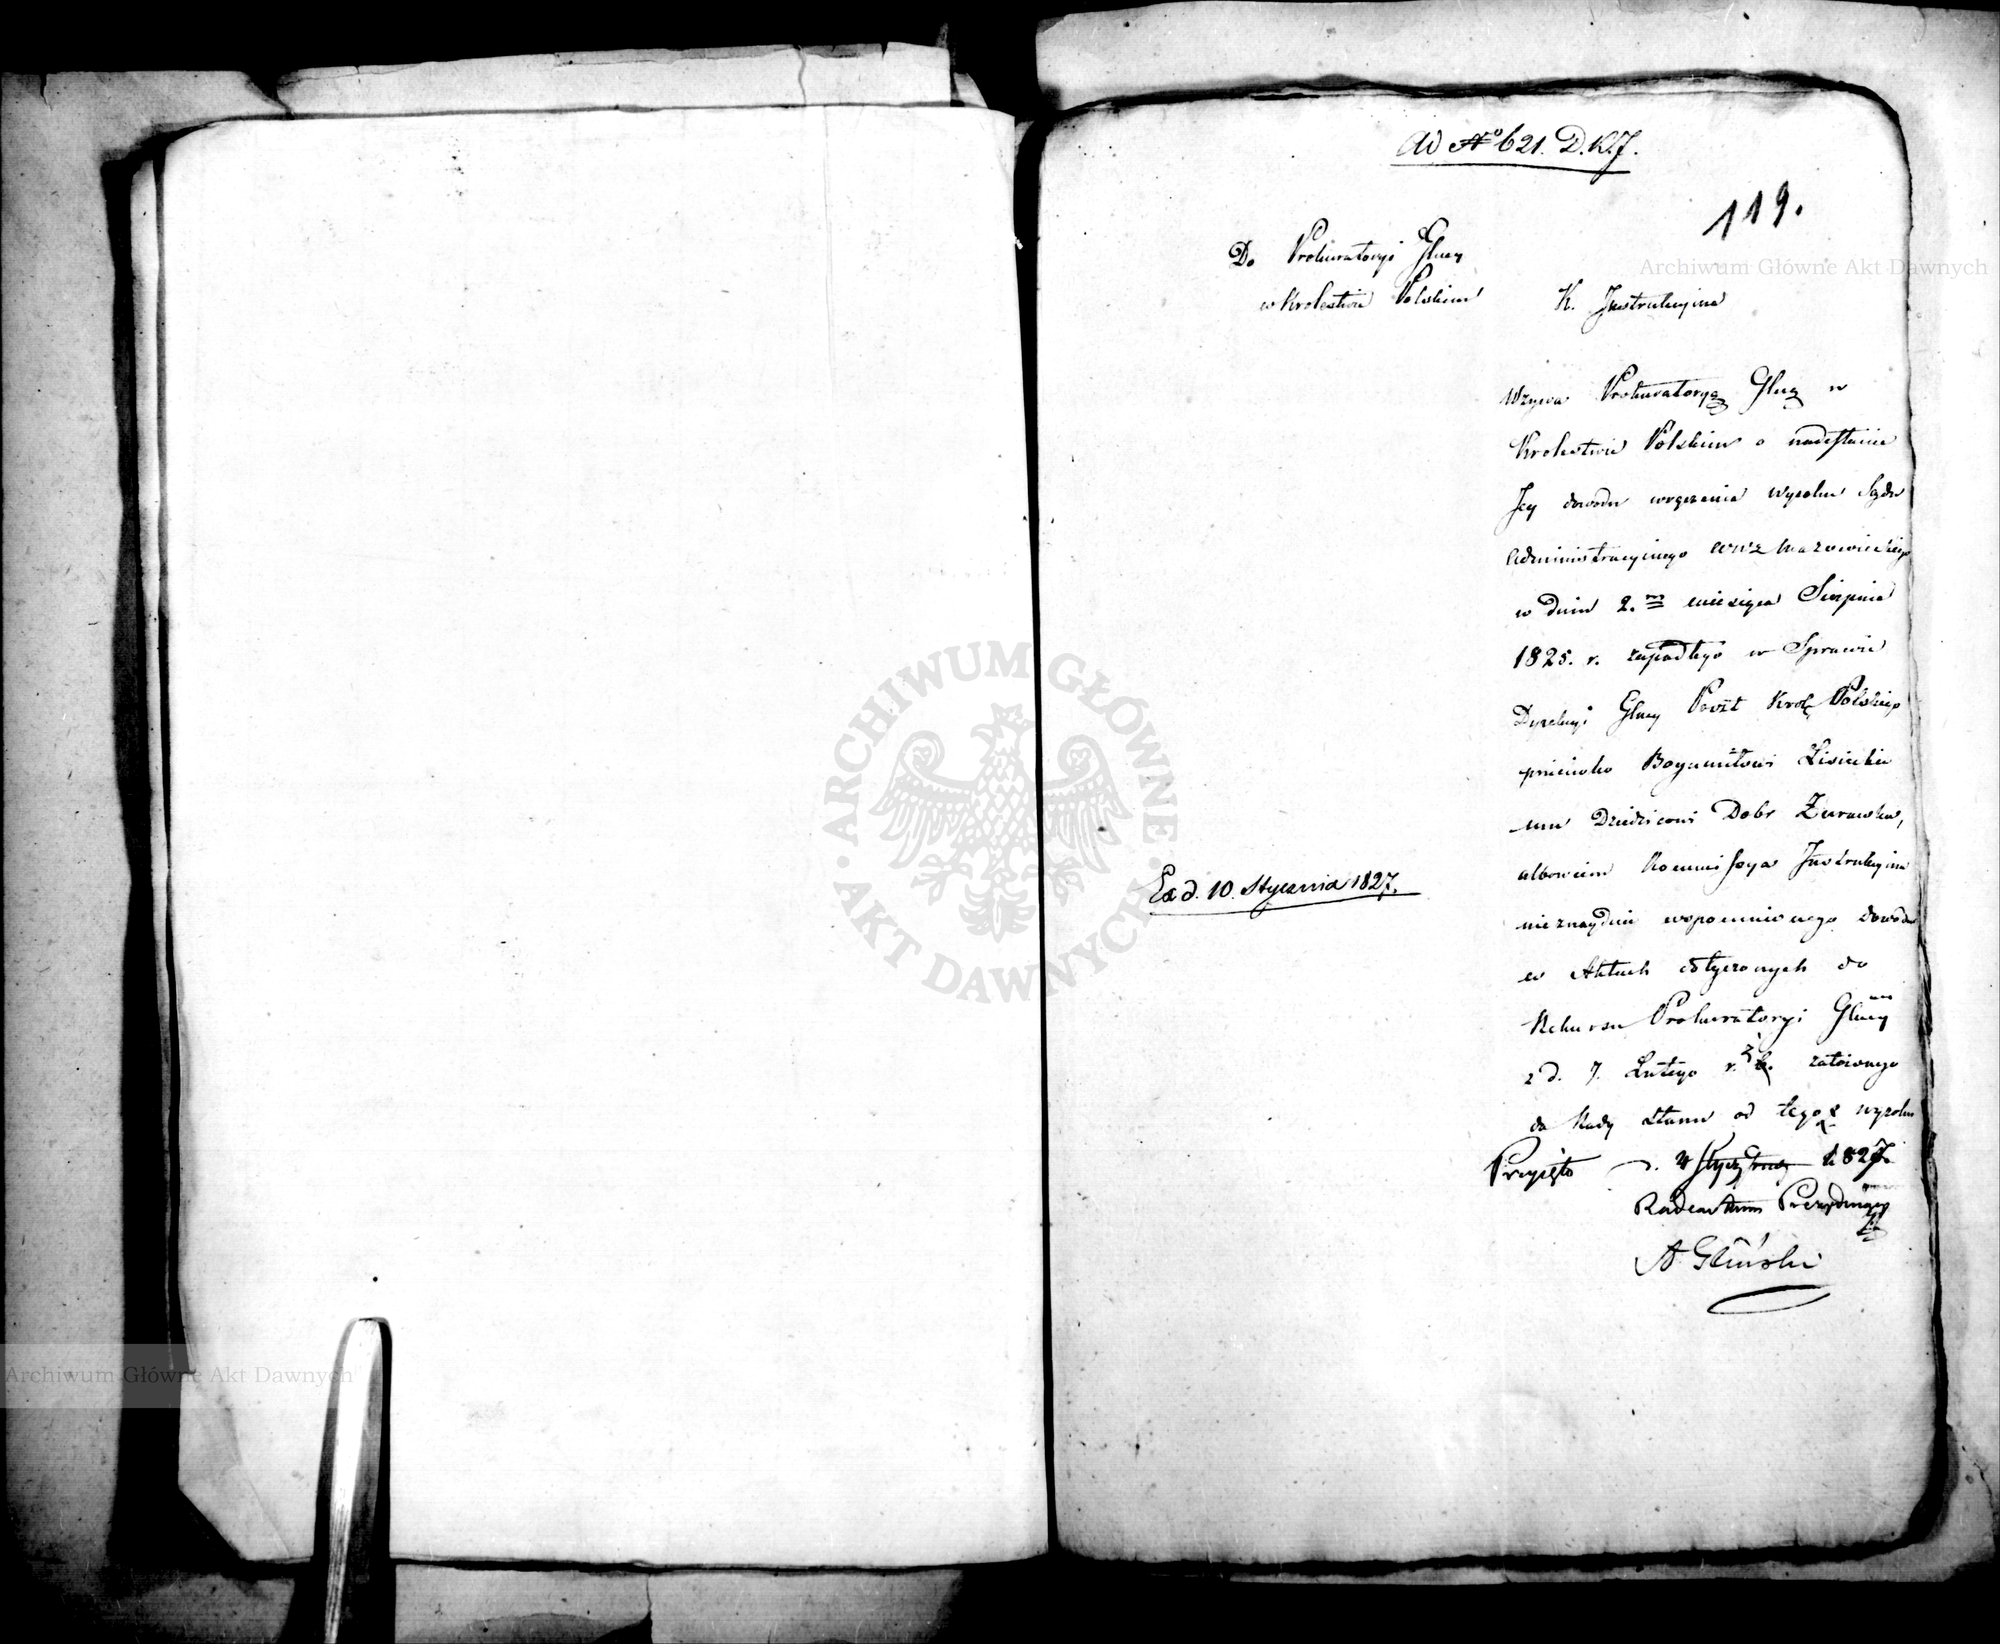 Ad No 621. D.K.J.
119.
Do Prokuratoryi Głney
w Krolestwie Polskiem
K. Instrukcyina
Wzywa Prokuratoryą Głną w
Krolestwie Polskiem o nadesłanie
Jey dowodu wręczenia wyroku Sądu
Administracyinego Mazowieckiego
w Dniu 2. miesiąca Sierpnia
1825. r. zapadłego w Sprawie
Dyrekcyi Głney Poczt Krol. Polskiego
przeciwko Bogumiłowi Lisieckie
mu Dziedzicowi Dobr Żurawka,
albowiem Kommissya Instrukcyina
nieznayduie wspomnionego dowodu
w Aktach dołączonych do
Rekursu Prokuratoryi Głney
z d. 7. Lutego r. z. założonego
do Rady Stanu od tegoż wyroku
Przyięto d. 4 Stycznia 1827.
Exd. 10. Stycznia 1827.
Radca Stanu Prezyduiący
A Gliński
ARCHIWUM GŁÓWNE AKT DAWNYCH
Archiwum Główne Akt Dawnych
Archiwum Główne Akt Dawnych